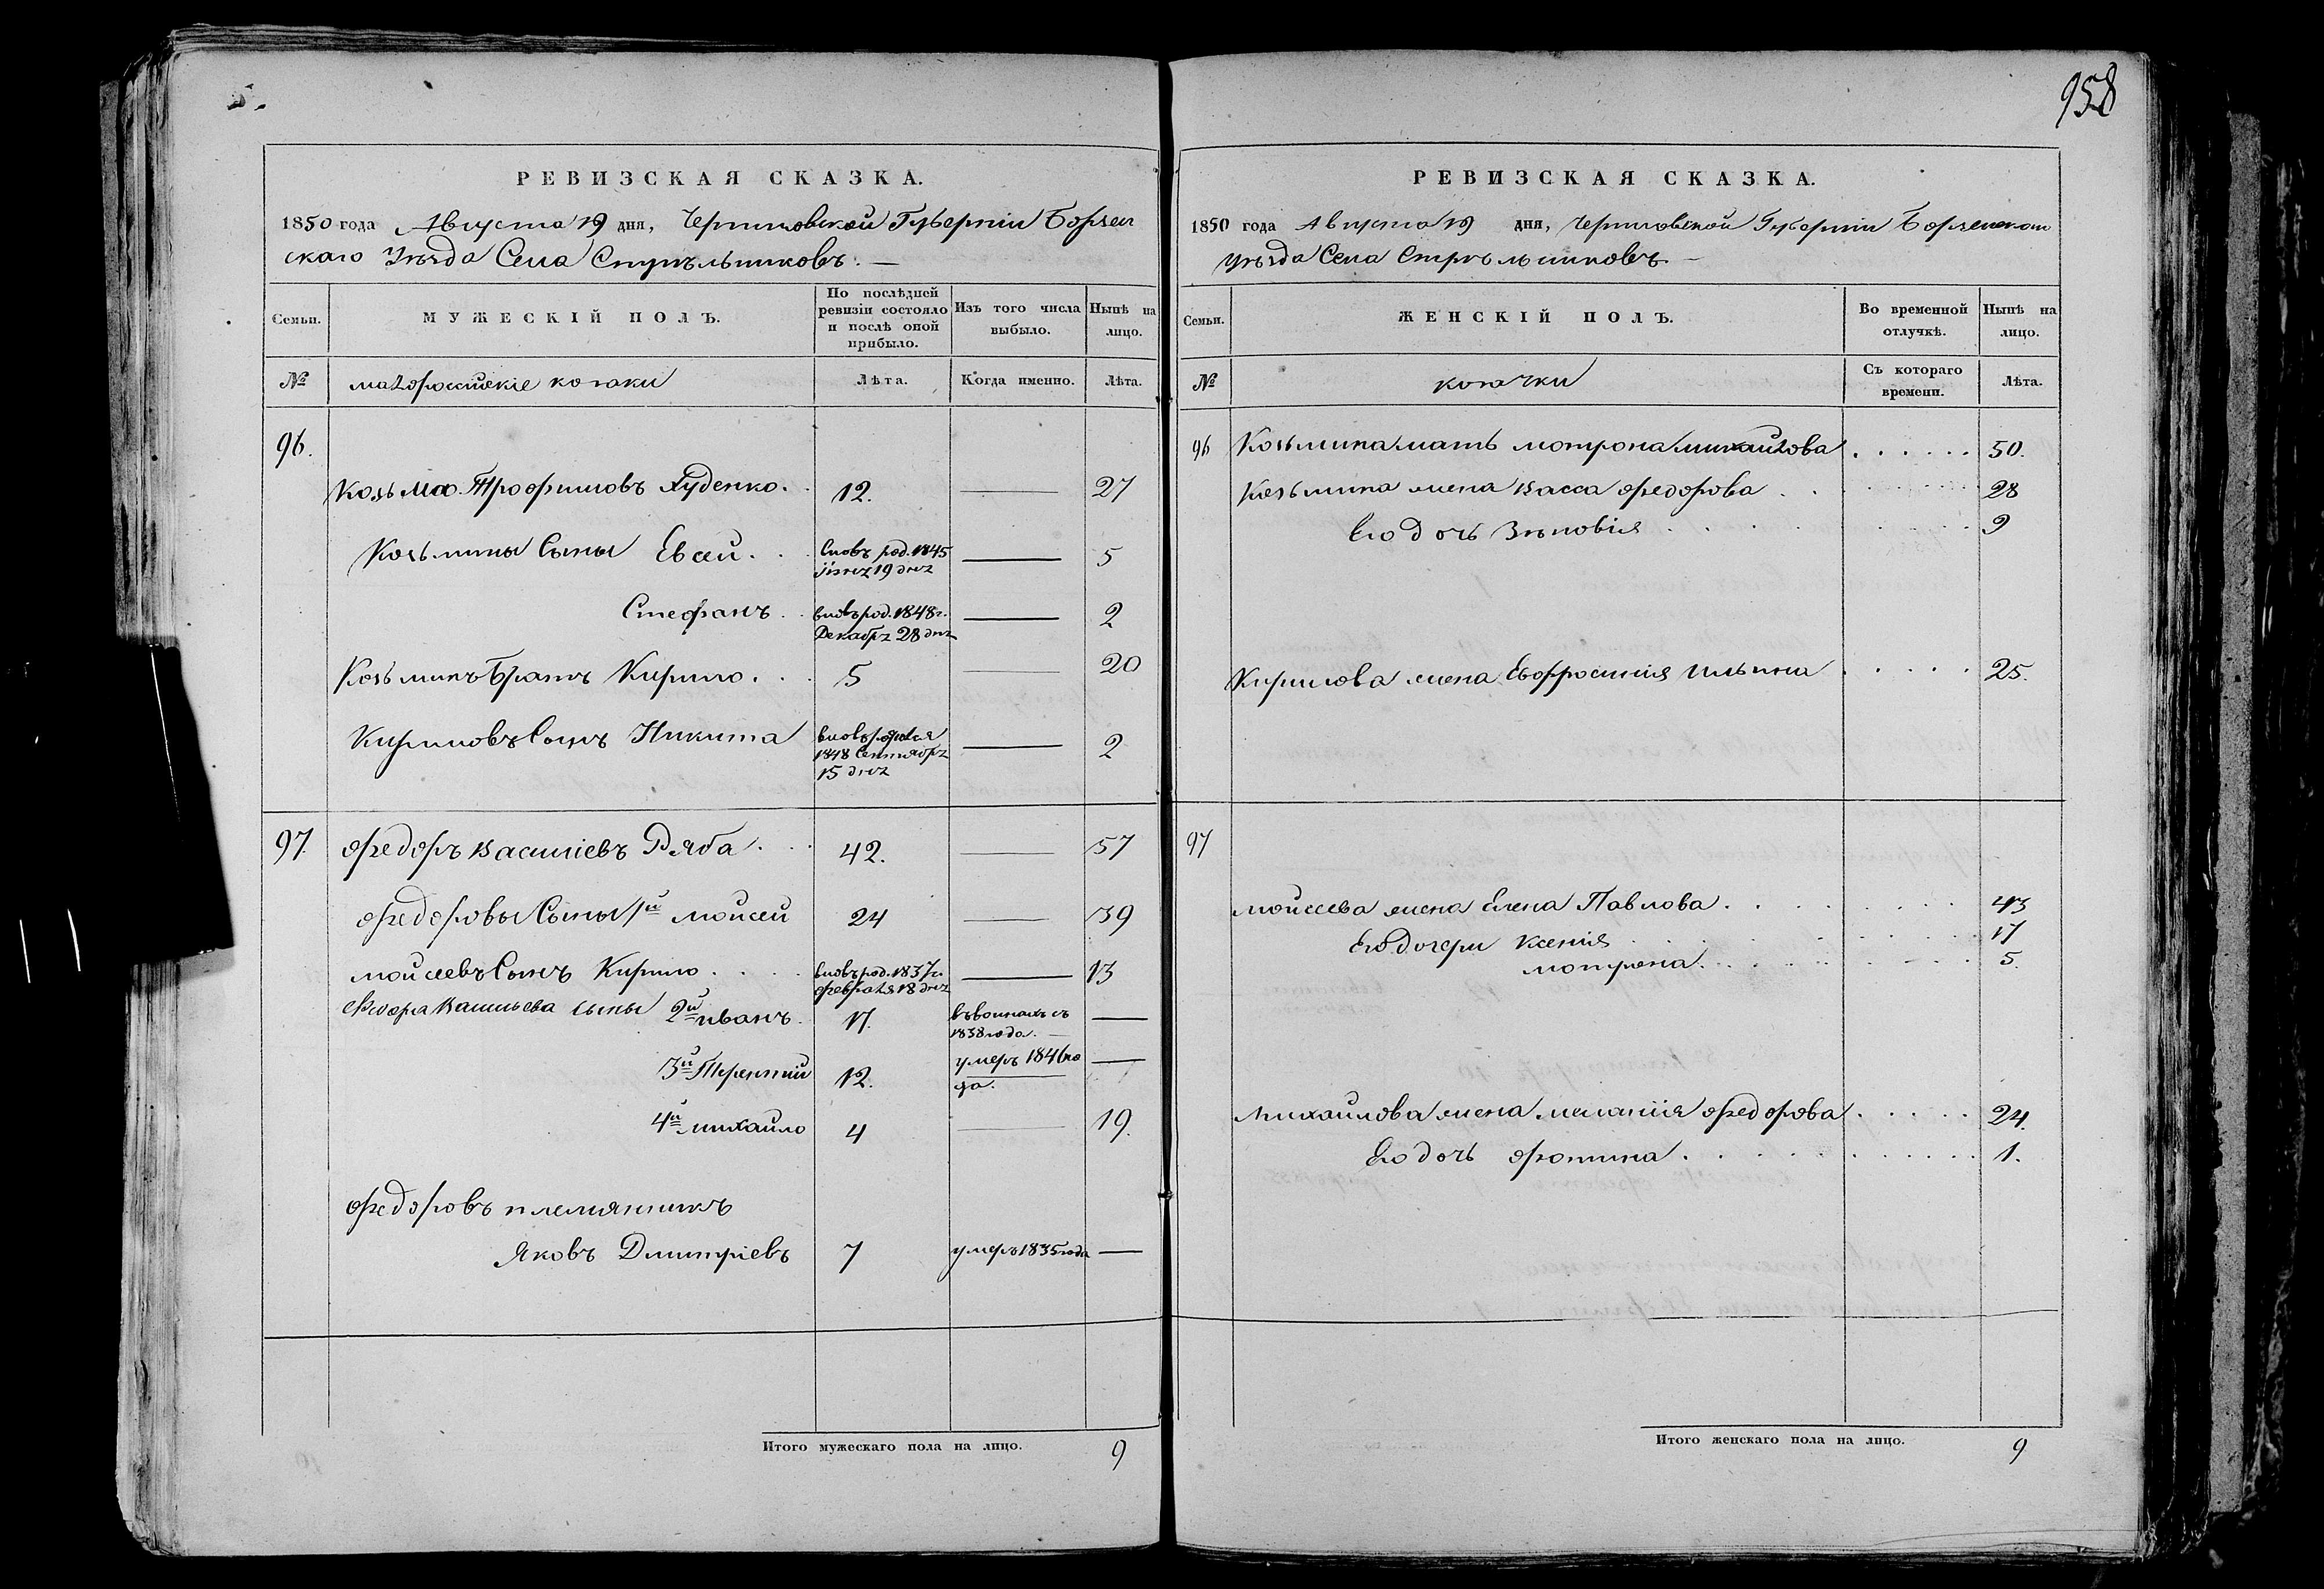 958
РЕВИЗСКАЯ СКАЗКА.
1850 года Августа 19 дня, Черниговской Губерніи Борзен
скаго Уѣзда Села Стрѣльниковъ. —
Семьи.
МУЖЕСКІЙ ПОЛЪ.
По послѣдней ревизіи состояло и послѣ оной прибыло.
Изъ того числа выбыло.
Нынѣ на лицо.
№ малороссійскіе козаки Лѣта. Когда именно. Лѣта.
96.
Козьма Трофимовъ Худенко. 12. — 27
Козьмины Сыны Евсей. вновь род. 1845 — 5
19 дня
Стефанъ вновь род. 1848 г. — 2
Декабря 28 дня
Козьминъ Братъ Кирило. 5 — 20
Кириловъ Сынъ Никита вновь родился — 2
1848 Сентября
15 дня
97. Федоръ Василіевъ Ряба 42. — 57
Федоровы Сыны 1й Мойсей 24 — 39
Мойсеевъ Сынъ Кирило вновь род. 1837 г. — 13
февраля 18 дня
Федора Васильева сыны 2й Иванъ. 17. въ воинахъ съ —
1838 года. —
3й Терентий 12. умеръ 1846 го —
да.
4й Михайло 4 — 19.
Федоровъ племянникъ
Яковъ Дмитріевъ 7 умеръ 1835 года —
Итого мужескаго пола на лицо. 9
РЕВИЗСКАЯ СКАЗКА.
1850 года Августа 19 дня, Черниговской Губерніи Борзенскаго
Уѣзда Села Стрѣльниковъ —
Семьи.
ЖЕНСКІЙ ПОЛЪ.
Во временной отлучкѣ.
Нынѣ на лицо.
№ козачки Съ котораго времени. Лѣта.
96 Козьмина мать Мотрона Михайлова 50.
Козьмина жена Васса Федорова 28
Его дочь Зѣновія 9
Кирилова жена Евфросинія Ильина 25.
97
Мойсеева жена Елена Павлова 43
Его дочери Ксенія 17
Мотрона 5.
Михайлова жена Меланія Федорова 24.
Его дочь Фотина 1.
Итого женскаго пола на лицо. 9